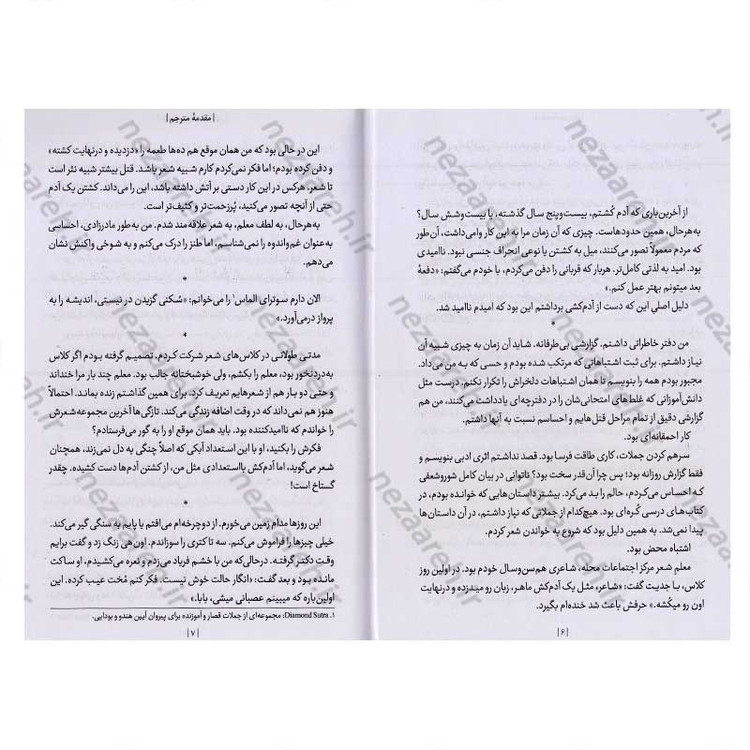 از آخرین‌باری که آدم کُشتم، بیست‌وپنج سال گذشته، یا بیست‌وشش سال؟
به‌هرحال، همین حدودهاست. چیزی که آن زمان مرا به این کار وامی‌داشت، آن‌طور
که مردم معمولاً تصور می‌کنند، میل به کشتن یا نوعی انحراف جنسی نبود. ناامیدی
بود. امید به لذتی کامل‌تر. هربار که قربانی را دفن می‌کردم، با خودم می‌گفتم: «دفعهٔ
بعد میتونم بهتر عمل کنم.»
دلیل اصلیِ این که دست از آدم‌کشی برداشتم این بود که امیدم ناامید شد.
*
من دفتر خاطراتی داشتم. گزارشی بی‌طرفانه. شاید آن زمان به چیزی شبیه آن
نیاز داشتم. برای ثبت اشتباهاتی که مرتکب شده بودم و حسی که به من می‌داد.
مجبور بودم همه را بنویسم تا همان اشتباهات دلخراش را تکرار نکنم. درست مثل
دانش‌آموزانی که غلط‌های امتحانی‌شان را در دفترچه‌ای یادداشت می‌کنند، من هم
گزارشی دقیق از تمام مراحل قتل‌هایم و احساسم نسبت به آنها داشتم.
کار احمقانه‌ای بود.
سرهم کردن جملات، کاری طاقت فرسا بود. قصد نداشتم اثری ادبی بنویسم و
فقط گزارش روزانه بود؛ پس چرا آن‌قدر سخت بود؟ ناتوانی در بیان کامل شوروشعفی
که احساس می‌کردم، حالم را بد می‌کرد. بیشتر داستان‌هایی که خوانده بودم، در
کتاب‌های درسی کُره‌ای بود. هیچ‌کدام از جملاتی که نیاز داشتم، در آن داستان‌ها
پیدا نمی‌شد. به همین دلیل بود که شروع به خواندن شعر کردم.
اشتباه محض بود.
معلم شعر مرکز اجتماعات محله، شاعری هم‌سن‌وسال خودم بود. در اولین روز
کلاس، با جدیت گفت: «شاعر، مثل یک آدم‌کش ماهر، زبان رو میدزده و درنهایت
اون رو میکُشه.» حرفش باعث شد خنده‌ام بگیرد.
|۶|
| مقدمهٔ مترجم |
این در حالی بود که من همان موقع هم ده‌ها طعمه را «دزدیده و درنهایت کشته»
و دفن کرده بودم؛ اما فکر نمی‌کردم کارم شبیه شعر باشد. قتل بیشتر شبیه نثر است
تا شعر. هرکس در این کار دستی بر آتش داشته باشد، این را می‌داند. کشتن یک آدم
حتی از آنچه تصور می‌کنید، پُرزحمت‌تر و کثیف‌تر است.
به‌هرحال، به لطف معلم، به شعر علاقه‌مند شدم. من به‌طور مادرزادی، احساسی
به‌عنوان غم‌واندوه را نمی‌شناسم، اما طنز را درک می‌کنم و به شوخی واکنش نشان
می‌دهم.
*
الان دارم سوترای الماس۱ را می‌خوانم: «سُکنی گزیدن در نیستی، اندیشه را به
پرواز درمی‌آورد.»
*
مدتی طولانی در کلاس‌های شعر شرکت کردم. تصمیم گرفته بودم اگر کلاس
به‌دردنخور بود، معلم را بکشم، ولی خوشبختانه جالب بود. معلم چند بار مرا خنداند
و حتی دو بار هم از شعرهایم تعریف کرد. برای همین گذاشتم زنده بماند. احتمالاً
هنوز هم نمی‌داند که در وقت اضافه زندگی می‌کند. تازگی‌ها آخرین مجموعه‌شعرش
را خواندم که ناامیدکننده بود. باید همان موقع او را به گور می‌فرستادم؟
فکرش را بکنید، او با این استعداد آبکی که اصلاً چنگی به دل نمی‌زند، همچنان
شعر می‌گوید، اما آدم‌کش بااستعدادی مثل من، از کشتن آدم‌ها دست کشیده. چقدر
گستاخ است!
*
این روزها مدام زمین می‌خورم. از دوچرخه‌ام می‌افتم یا پایم به سنگی گیر می‌کند.
خیلی چیزها را فراموش می‌کنم. سه تا کتری را سوزاندم. اون‌هی زنگ زد و گفت برایم
وقت دکتر گرفته. درحالی‌که من با خشم فریاد می‌زدم و نعره می‌کشیدم، او ساکت
مانده بود و بعد گفت: «انگار حالت خوش نیست. فکر کنم مُخت عیب کرده. این
اولین‌باره که میبینم عصبانی میشی، بابا.»
۱. Diamond Sutra: مجموعه‌ای از جملات قصار و آموزنده برای پیروان آیین هندو و بودایی.
|۷|
nezaareh.ir